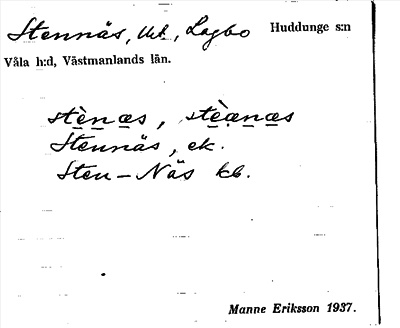 Stennäs, Utj., Lagbo Huddunge s:n
Våla h:d, Västmanlands län.
stè̱ṉæ̱s, stè̱æṉæ̱s
Stennäs, ek.
Sten-Näs kb.
Manne Eriksson 1937.